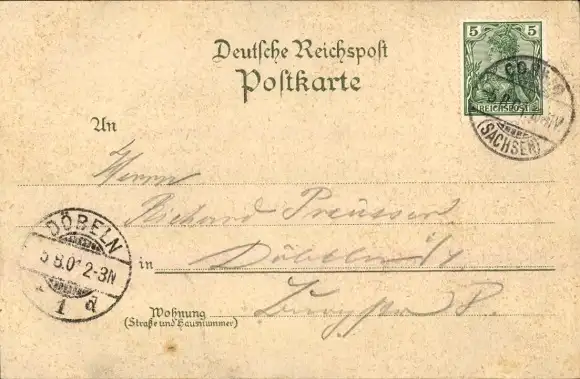 Deutsche Reichspost
Postkarte
5 5
REICHSPOST
(SACHSEN)
An
Herrn
Richard Preusser
in Döbeln i/
DÖBELN
2-3N
1 d
Wohnung
(Straße und Hausnummer)